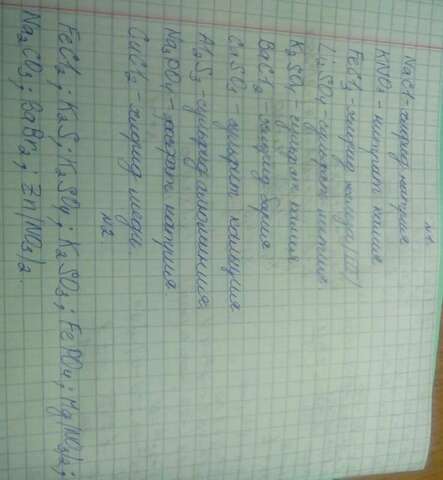 №1
NaCl - хлорид натрия
KNO3 - нитрат калия
FeCl3 - хлорид железа (III)
Li2SO4 - сульфат лития
K2SO4 - сульфат калия
BaCl2 - хлорид бария
CaSO3 - сульфит кальция
Al2S3 - сульфид алюминия
Na3PO4 - фосфат натрия
CuCl2 - хлорид меди
№2
FeCl2; K2S; K2SO4; K2SO3; FePO4; Mg(NO3)2;
Na2CO3; BaBr2; Zn(NO3)2.